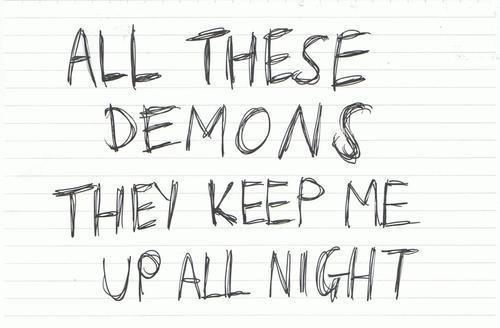 ALL THESE
DEMONS
THEY KEEP ME
UP ALL NIGHT